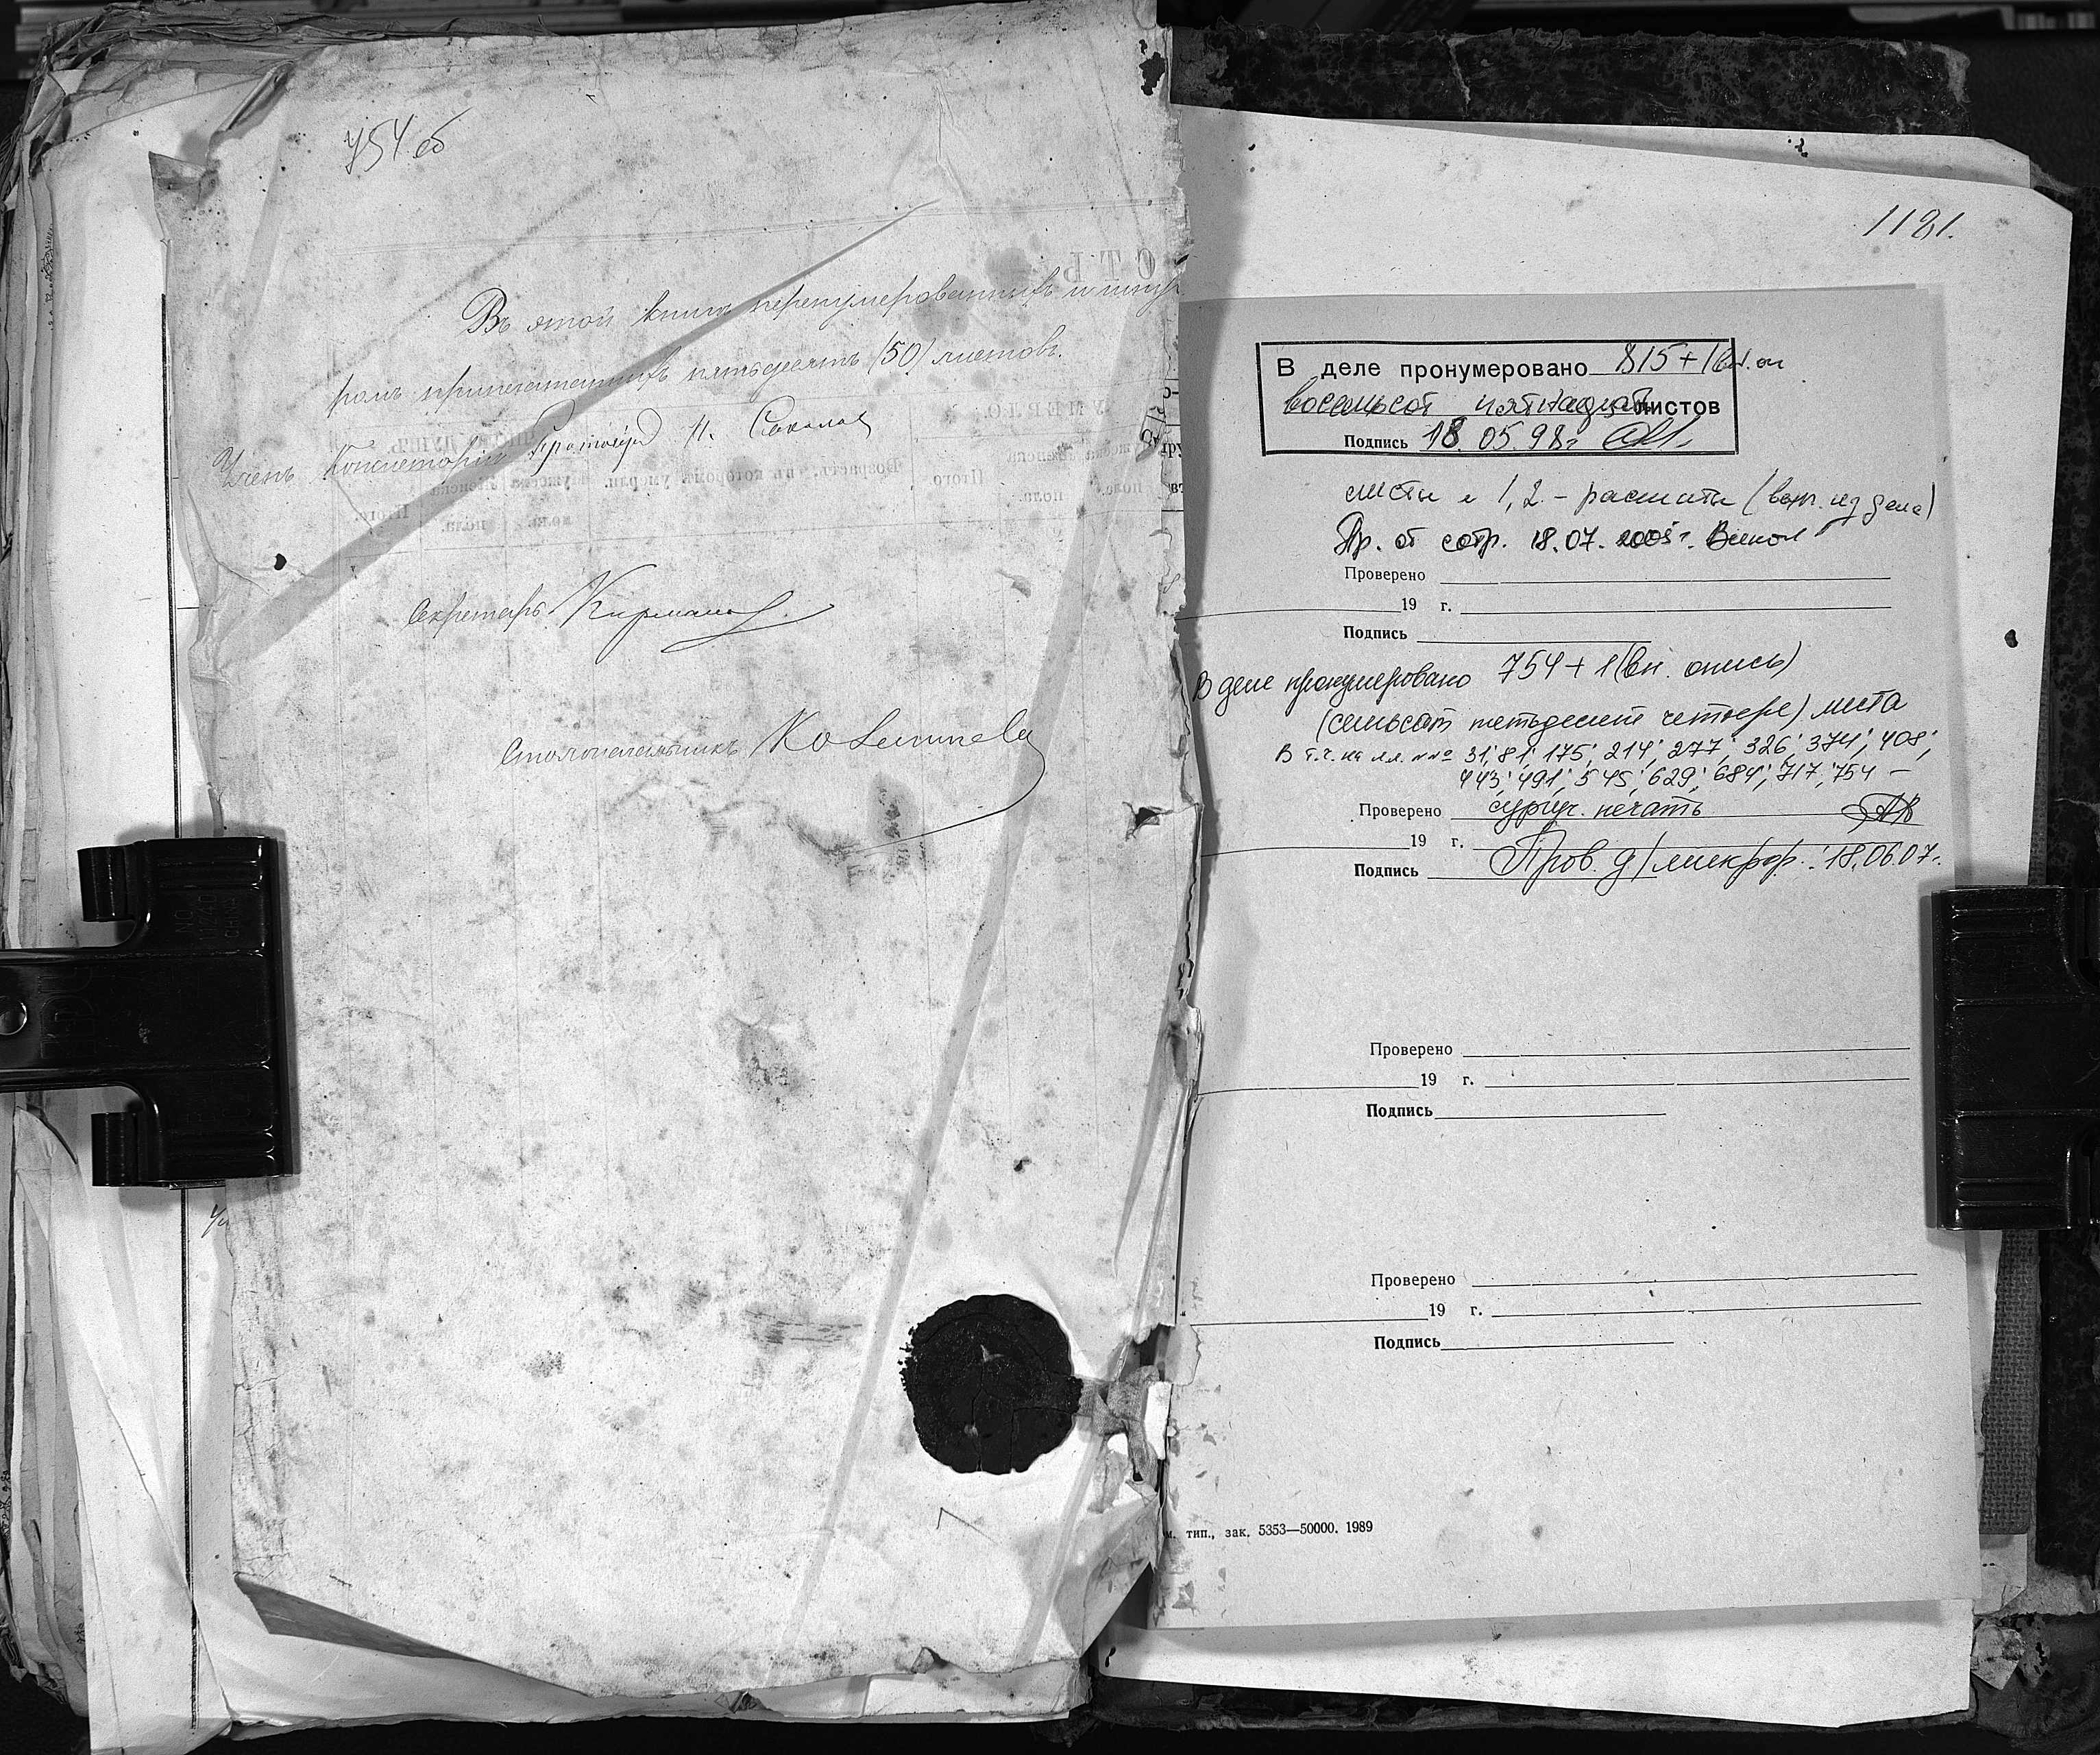 754 об
Въ этой книгѣ перенумерованныхъ и шнуромъ
ромъ припечатанныхъ пятьдесятъ (50) листовъ.
Членъ Консисторіи Протоіерей Н. Соколов
Секретарь
Столоначальникъ
1181.
В деле пронумеровано 815+1
восемьсот пятнадцать листов
Подпись 18.05.98г
листы 1, 2 - расшиты (вып. из дела)
Пр. от сотр. 18.07.2005г.
Проверено
19 г.
Подпись
В деле пронумеровано 754+1 (вн. опись)
(семьсот петьдесят четыре) листа
В т.ч. на лл. №№ 31; 81; 175; 214; 277; 326; 374; 408;
443; 491; 545; 629; 684; 717; 754 –
Проверено сургуч. печать
19 г.
Подпись Пров. д/микроф. 18.06.07.
Проверено
19 г.
Подпись
Проверено
19 г.
Подпись
тип., зак. 5353—50000. 1989